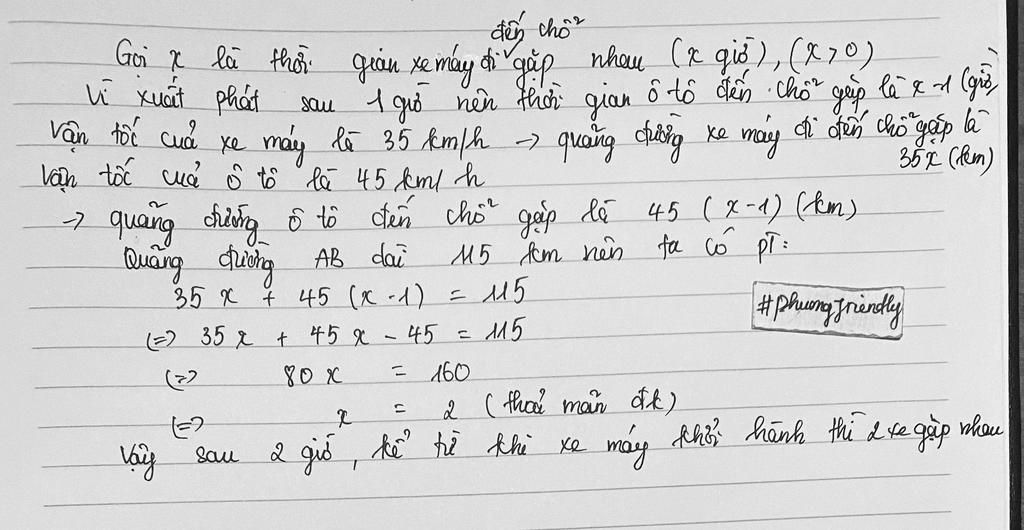 đến chỗ
Gọi x là thời gian xe máy đi gặp nhau (x giờ), (x > 0)
Vì xuất phát sau 1 giờ nên thời gian ô tô đến chỗ gặp là x - 1 (giờ)
Vận tốc của xe máy là 35 km/h → quãng đường xe máy đi đến chỗ gặp là
35x (km)
Vận tốc của ô tô là 45 km/h
→ quãng đường ô tô đến chỗ gặp là 45 (x-1) (km)
Quãng đường AB dài 115 km nên ta có pT:
35x + 45 (x-1) = 115
#phuongfriendly
(=> 35x + 45x - 45 = 115
(=> 80x = 160
(=> x = 2 (thoả mãn đk)
Vậy sau 2 giờ, kể từ khi xe máy khởi hành thì 2 xe gặp nhau